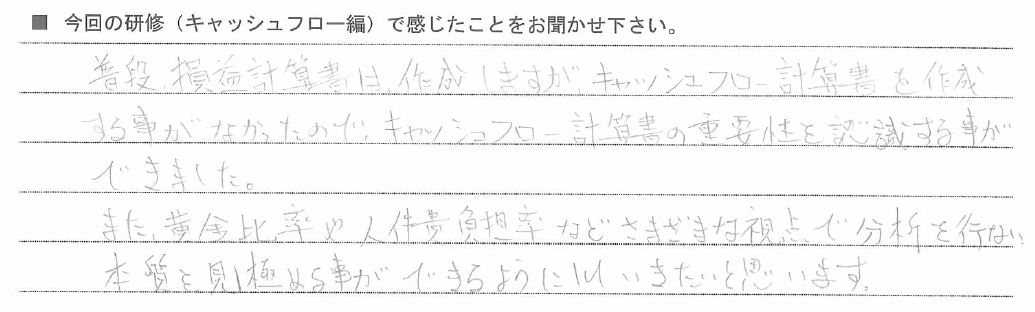 ■ 今回の研修（キャッシュフロー編）で感じたことをお聞かせ下さい。
普段、損益計算書は、作成しますが、キャッシュフロー計算書を作成
する事がなかったので、キャッシュフロー計算書の重要性を認識する事が
できました。
また、黄金比率や人件費負担率などさまざまな視点で分析を行ない
本質を見極める事ができるようにしていきたいと思います。